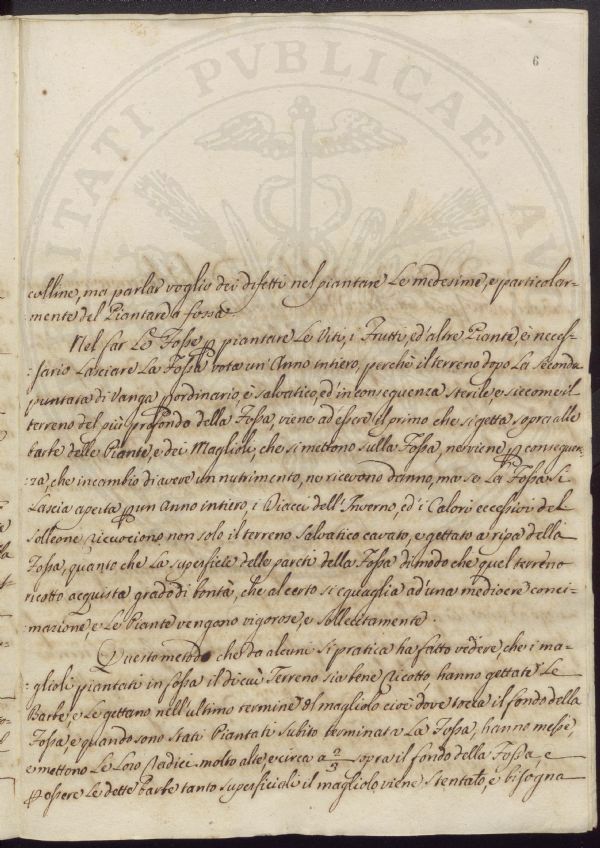 6
colline, ma parlar voglio dei difetti nel piantare Le medesime, e particolar-
-mente del Piantare a fossa
Nel far Le Fosse p piantare Le Viti, i Frutti, ed'altre Piante, è neces-
-sario Lasciare La Fossa vota un'Anno intiero, perchè il terreno dopo La seconda
puntata di Vanga p ordinario, è salvatico, ed' in consequenza sterile, e siccome il
terreno del più profondo della Fossa, viene ad'essere il primo che si getta sopra alle
barbe delle Piante, e dei Magliuoli, che si mettono sulla Fossa, ne viene p consequen-
-za, che in cambio di avere un nutrimento, ne ricevono danno, ma se La Fossa si
Lascia aperta p un Anno intiero, i Diacci dell'Inverno, ed'i Calori eccessivi del
Solleone ricuociono non solo il terreno Salvatico cavato, e gettato a ripa della
Fossa, quanto che La superficie delle pareti della Fossa di modo che quel terreno
ricotto acquista grado di bontà, che al certo si equaglia ad'una mediocre conci-
mazione, e Le Piante vengono vigorose, e sollecitamente.
Questo metodo che da alcuni si pratica ha fatto vedere, che i ma-
-glioli piantati in fossa il di cui Terreno sia bene ricotto hanno gettate Le
Barbe, e Le gettano nell'ultimo termine del magliolo cioè dove tocca il fondo della
Fossa, e quando sono stati Piantati subito terminata La Fossa, hanno messe,
e mettono Le Loro Radici molto alte, e circa a 2/3 sopra il fondo della Fossa, e
p essere Le dette barbe tanto superficiali il magliolo viene stentato, e bisogna
ITATI PVBLICAE